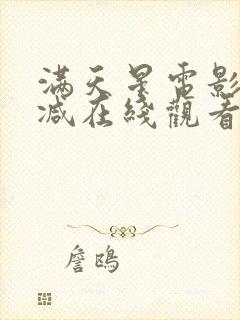 滿天星電影
減在綫觀看
詹鴎